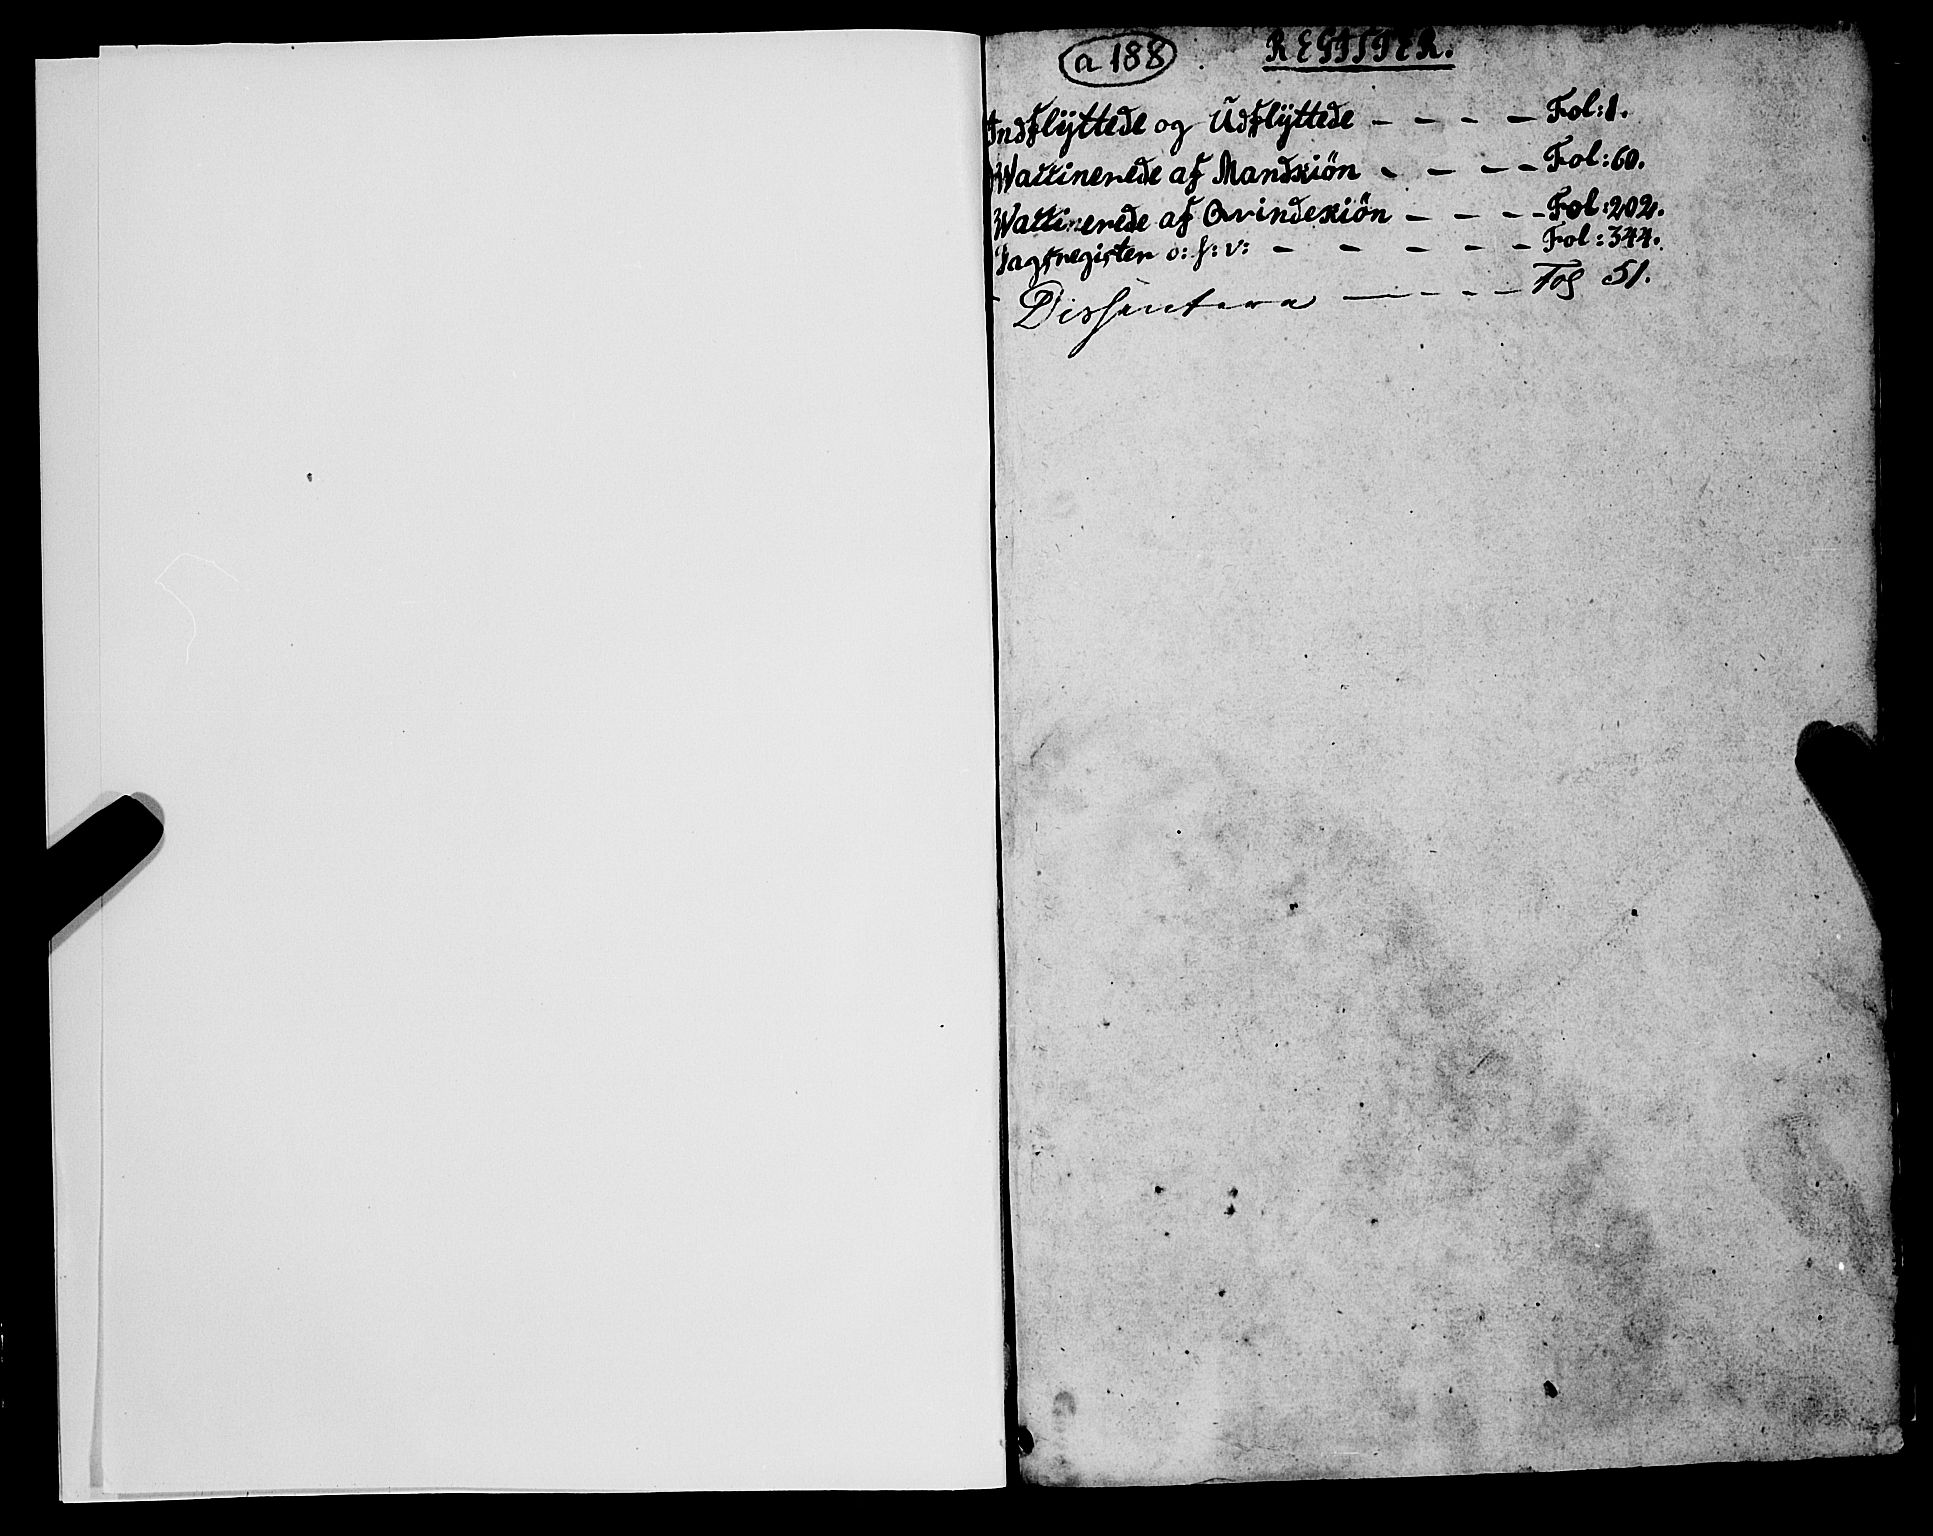 a 188
REGISTER.
Indflÿttede og Üdflÿttede - - - - Fol:1.
Waccinerede af Mandkiön - - - - Fol:60.
Waccinerede af Qvindekiön - - - - Fol:202.
Jagtregister o: s: v: - - - - - Fol:344.
Dissentere - - - - Fol 51.